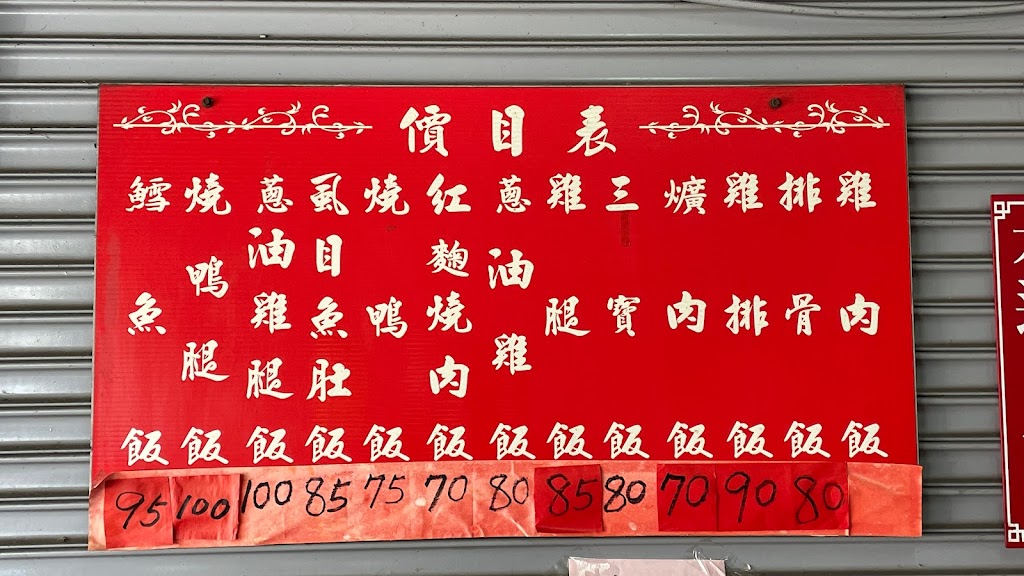 價目表
雞肉飯
排骨飯 80
雞排飯 90
爌肉飯 70
三寶飯 80
雞腿飯 85
蔥油雞飯 80
紅麴燒肉飯 70
燒鴨飯 75
虱目魚肚飯 85
蔥油雞腿飯 100
燒鴨腿飯 100
鱈魚飯 95